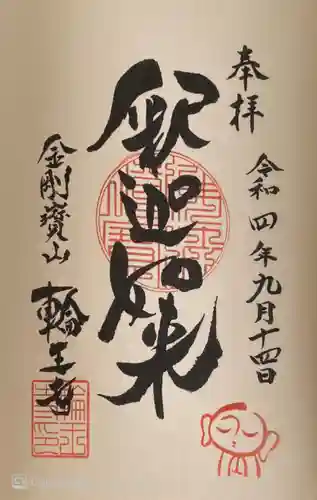 奉拝
令和四年九月十四日
釈迦如来
金剛寳山
輪王寺